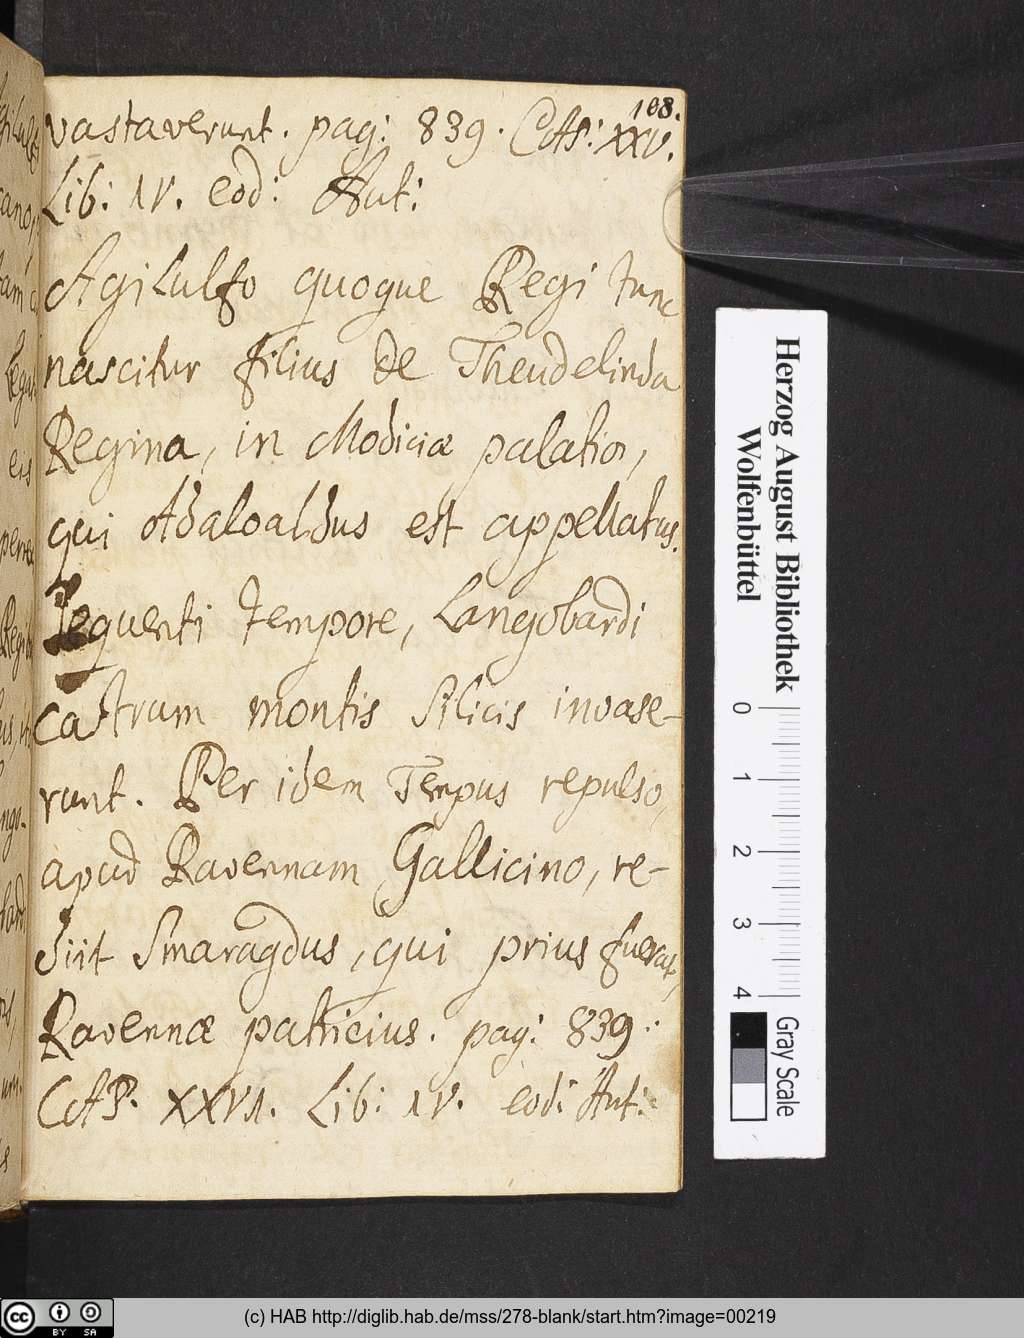 108.
vastaverunt. pag: 839. CAP: XXV.
Lib: IV. eod: Aut:
Agilulfo quoque Regi tunc
nascitur filius de Theudelinda
Regina, in Modiciæ palatio,
qui Adaloaldus est appellatus.
Sequenti tempore, Langobardi
castrum montis silicis invase-
runt. Per idem Tempus repulso,
apud Ravennam Gallicino, re-
diit Smaragdus, qui prius fuerat,
Ravennæ patricius. pag: 839.
CAP. XXVI. Lib: IV. eod: Aut:
Herzog August Bibliothek
Wolfenbüttel
0 1 2 3 4
Gray Scale
cc BY SA
(c) HAB http://diglib.hab.de/mss/278-blank/start.htm?image=00219